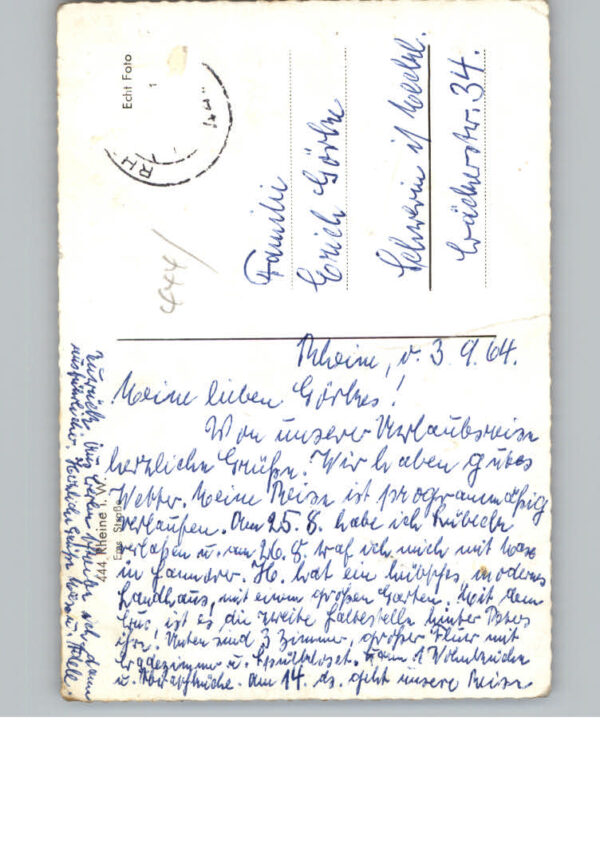 Echt Foto
1
RH
444/
Familie
Erich Görke
Schwerin i/ Meckl.
34.
Rheine, d. 3.9.64.
Meine lieben Görkes!
Von unserer Urlaubsreise
herzliche Grüße. Wir haben gutes
Wetter. Meine Reise ist programmäßig
verlaufen. Am 25.8. habe ich Lübeck
verlaßen u. am 26.8. traf ich mich mit
in Hannover. H. hat ein hübsches, modernes
Landhaus, mit einem großen Garten. Mit dem
Bus, ist es die zweite Haltestelle hinter
Unten sind 3 Zimmer, großer Flur mit
Badezimmer u. Spülkloset. 1 Wohnküche
u. Am 14. ds. geht unsere Reise
zurück. Aus Berlin schreibe ich dann
ausführlicher. Herzliche Grüße u. Adele.
444 Rheine i. W.
Ems Straße